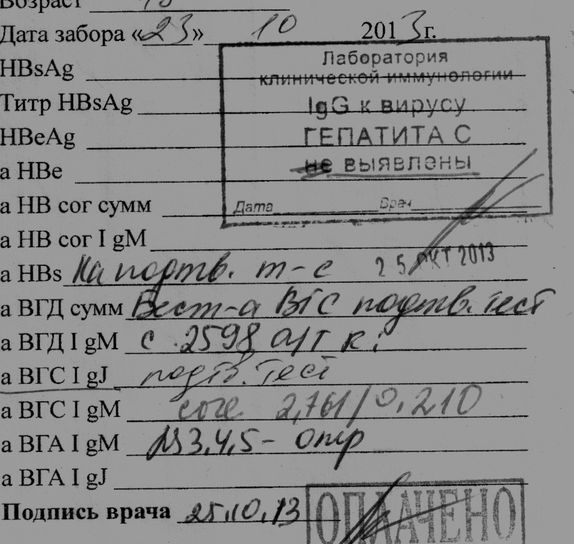 Возраст
Дата забора «23» 10 2013г.
Лаборатория
клинической иммунологии
IgG к вирусу
ГЕПАТИТА С
не выявлены
Дата Врач
HBsAg
Титр HBsAg
HBeAg
а HBe
а HB cor сумм
а HB cor I gM
25 ОКТ 2013
а HBs На подтв. т-с
а ВГД сумм Вест-а ВГС подтв. тест
а ВГД I gM с 2598
а ВГС I gJ подтв. тест
а ВГС I gM core 2,761/0,210
а ВГА I gM №3,4,5- отр
а ВГА I gJ
Подпись врача 25.10.13
ОПЛАЧЕНО